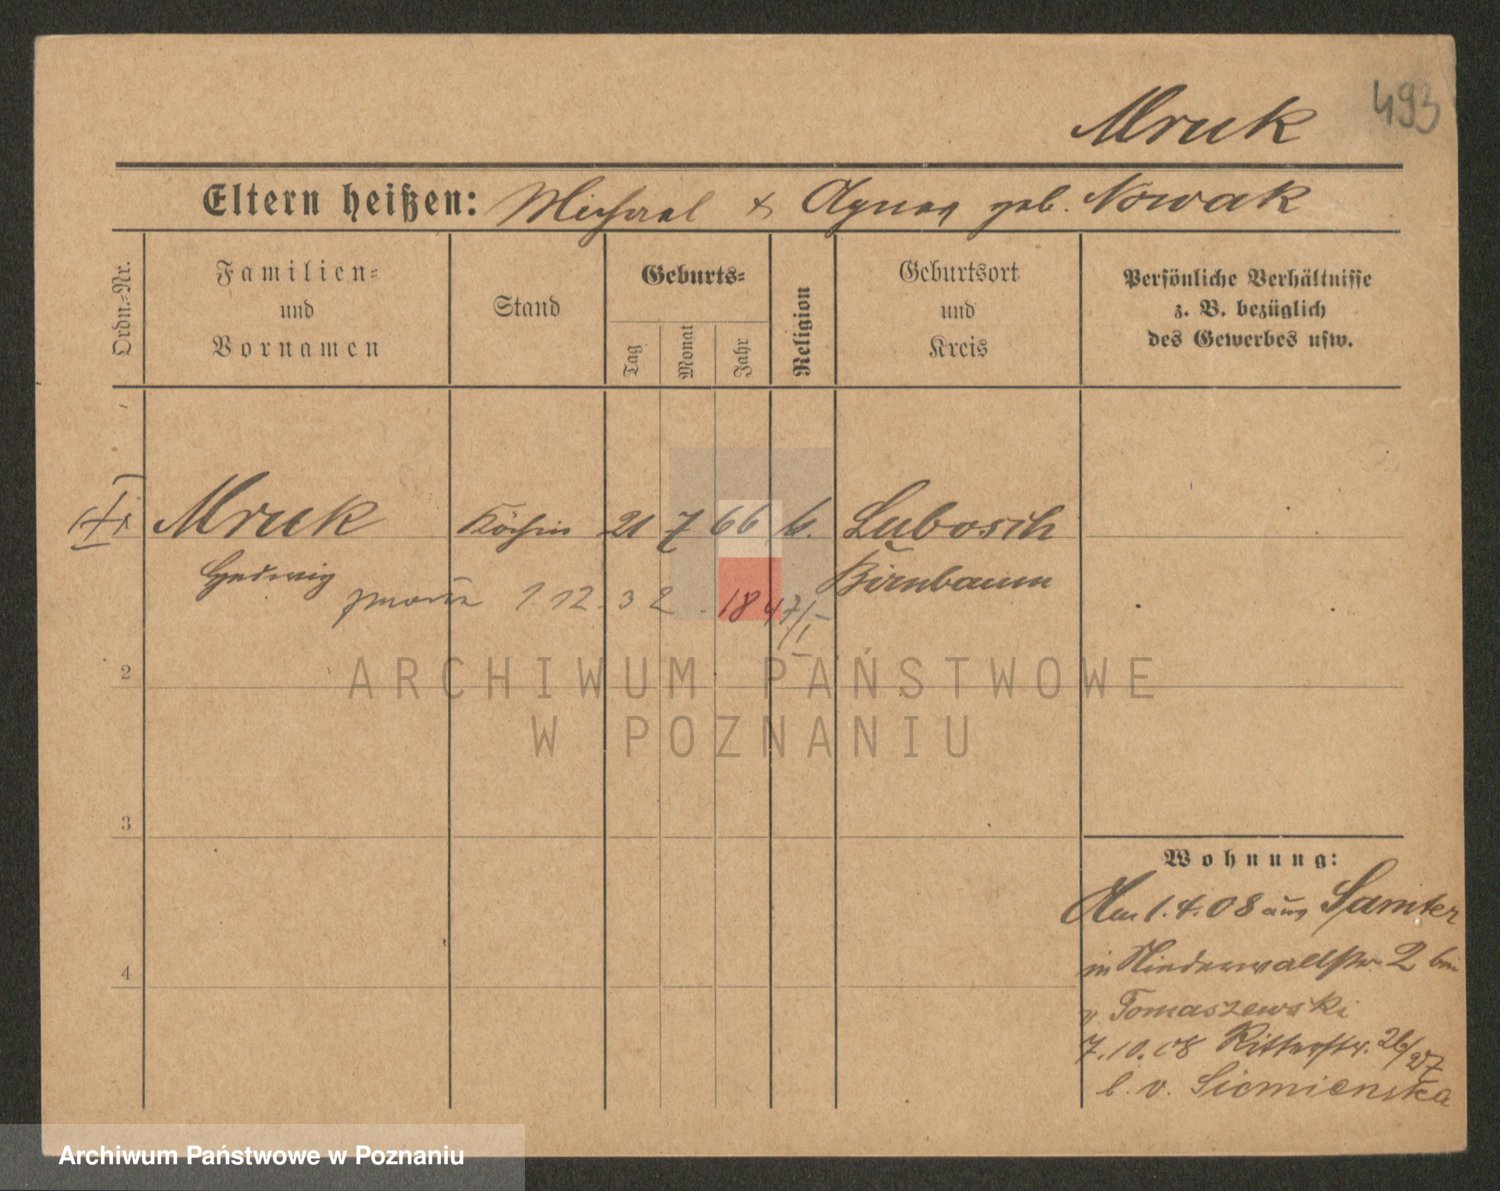 493
Mruk
Eltern heißen: Michael & Agnes geb. Nowak
Ordn.-Nr.
Familien-
und
Vornamen
Stand
Geburts-
Tag
Monat
Jahr
Religion
Geburtsort
und
Kreis
Persönliche Verhältnisse
z. B. bezüglich
des Gewerbes usw.
Mruk Köchin 21 7 66 k. Lubosch
Hedwig Birnbaum
zmarła 1.12.32. 1847/I
2
3
4
Wohnung:
Am 1.4.08 aus Samter
in Niederwallstr. 2 bei
v. Tomaszewski
7.10.08 Ritterstr. 26/27
b. v. Siemienska
ARCHIWUM PAŃSTWOWE
W POZNANIU
Archiwum Państwowe w Poznaniu